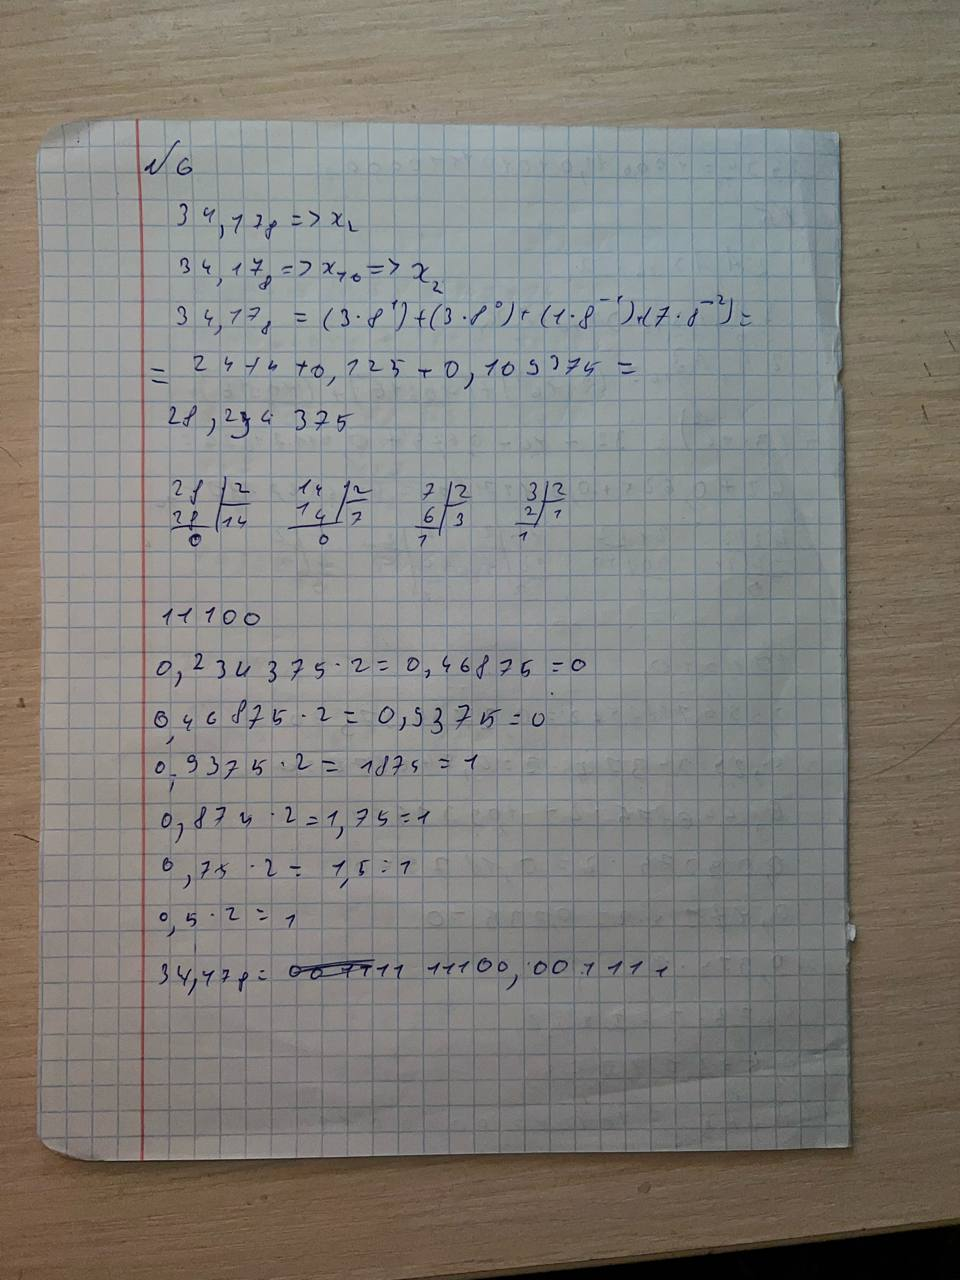 №6
34,17₈ => x₂
34,17₈ => x₁₀ => x₂
34,17₈ = (3·8¹)+(3·8⁰)+(1·8⁻¹)+(7·8⁻²)=
= 24+4+0,125+0,109375=
28,234375
28 | 2 14 | 2 7 | 2 3 | 2
28 | 14 14 | 7 6 | 3 2 | 1
0 0 1 1
11100
0,234375·2=0,46875=0
0,46875·2=0,9375=0
0,9375·2=1875=1
0,875·2=1,75=1
0,75·2= 1,5=1
0,5·2=1
34,17₈= 11100,001111